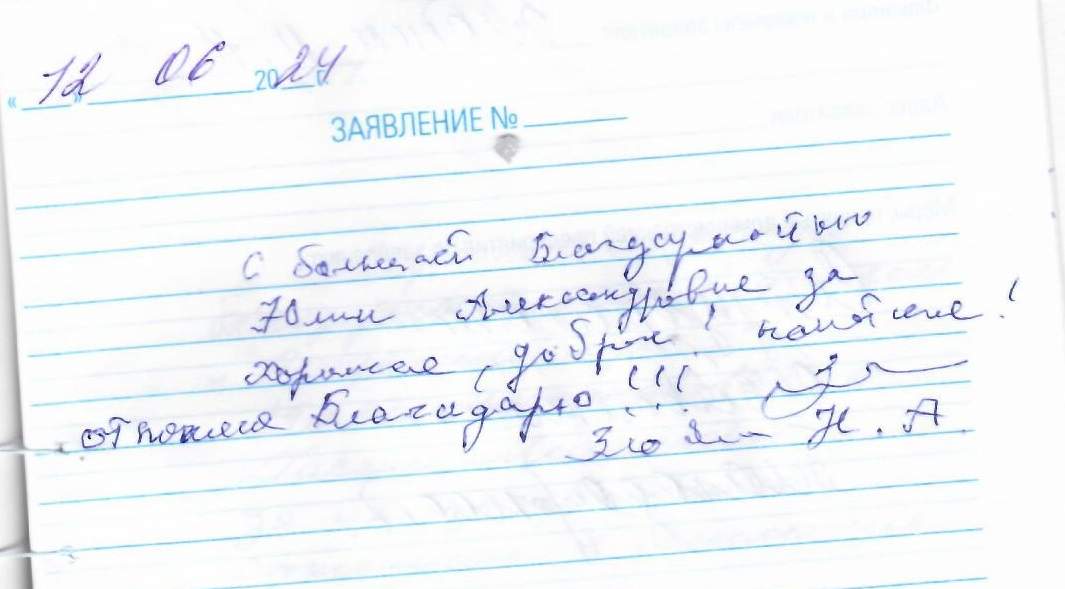 « 12 » 06 2024 г.
ЗАЯВЛЕНИЕ №
С большой Благодарностью
Юлии Александровне за
хорошее, доброе!
отношения Благадарю!!!
Н. А.